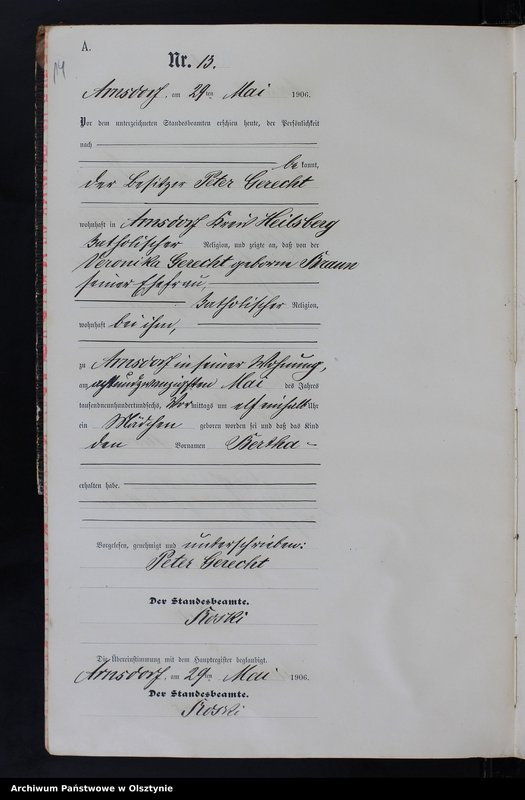 A.
14
Nr. 13.
Arnsdorf, am 29ten Mai 1906.
Vor dem unterzeichneten Standesbeamten erschien heute, der Persönlichkeit
nach
bekannt,
der Besitzer Peter Gerecht
wohnhaft in Arnsdorf Kreis Heilsberg
katholischer Religion, und zeigte an, daß von der
Veronika Gerecht geborne Braun
seiner Ehefrau,
katholischer Religion,
wohnhaft bei ihm,
zu Arnsdorf in seiner Wohnung,
am achtundzwanzigsten Mai des Jahres
tausendneunhundertundsechs, Vormittags um elf einhalb Uhr
ein Mädchen geboren worden sei und daß das Kind
den Vornamen Bertha
erhalten habe.
Vorgelesen, genehmigt und unterschrieben:
Peter Gerecht
Der Standesbeamte.
Die Übereinstimmung mit dem Hauptregister beglaubigt.
Arnsdorf, am 29ten Mai 1906.
Der Standesbeamte.
Archiwum Państwowe w Olsztynie